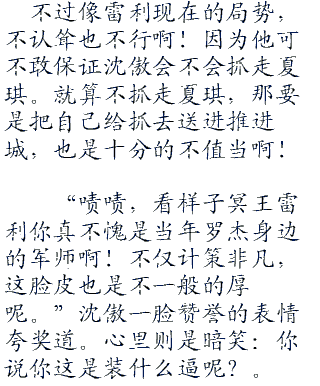 不过像雷利现在的局势，
不认耸也不行啊！因为他可
不敢保证沈傲会不会抓走夏
琪。就算不抓走夏琪，那要
是把自己给抓去送进推进
城，也是十分的不值当啊！
“啧啧，看样子冥王雷
利你真不愧是当年罗杰身边
的军师啊！不仅计策非凡，
这脸皮也是不一般的厚
呢。”沈傲一脸赞誉的表情
夸奖道。心里则是暗笑：你
说你这是装什么逼呢？。